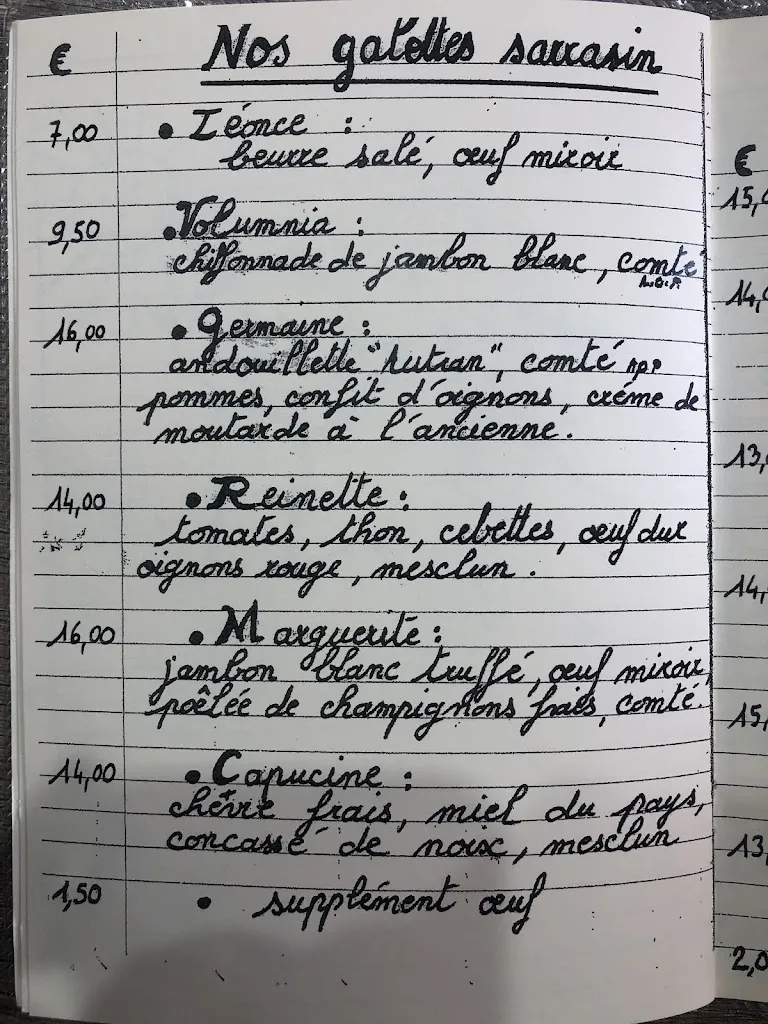 € Nos galettes sarrasin
7,00 • Léonce :
beurre salé, œuf miroir
9,50 • Volumnia :
chiffonnade de jambon blanc, comté
A.O.P.
16,00 • Germaine :
andouillette "Autran", comté AOP
pommes, confit d'oignons, crème de
moutarde à l'ancienne.
14,00 • Reinette :
tomates, thon, cebettes, œuf dur
oignons rouge, mesclun.
16,00 • Marguerite :
jambon blanc truffé, œuf miroir,
poêlée de champignons frais, comté.
14,00 • Capucine :
chèvre frais, miel du pays,
concassé de noix, mesclun
1,50 • supplément œuf
€
15,
14,
13,
14,
15,
13,
2,0